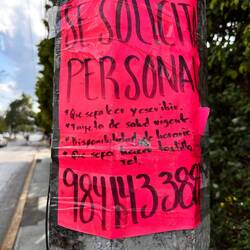 SE SOLICITA
PERSONAL
* Que sepa leer y escribir.
* Tarjeta de salud vigente.
* Disponibilidad de horario
* Que sepa hacer tortilla
Tel.
984 143 389